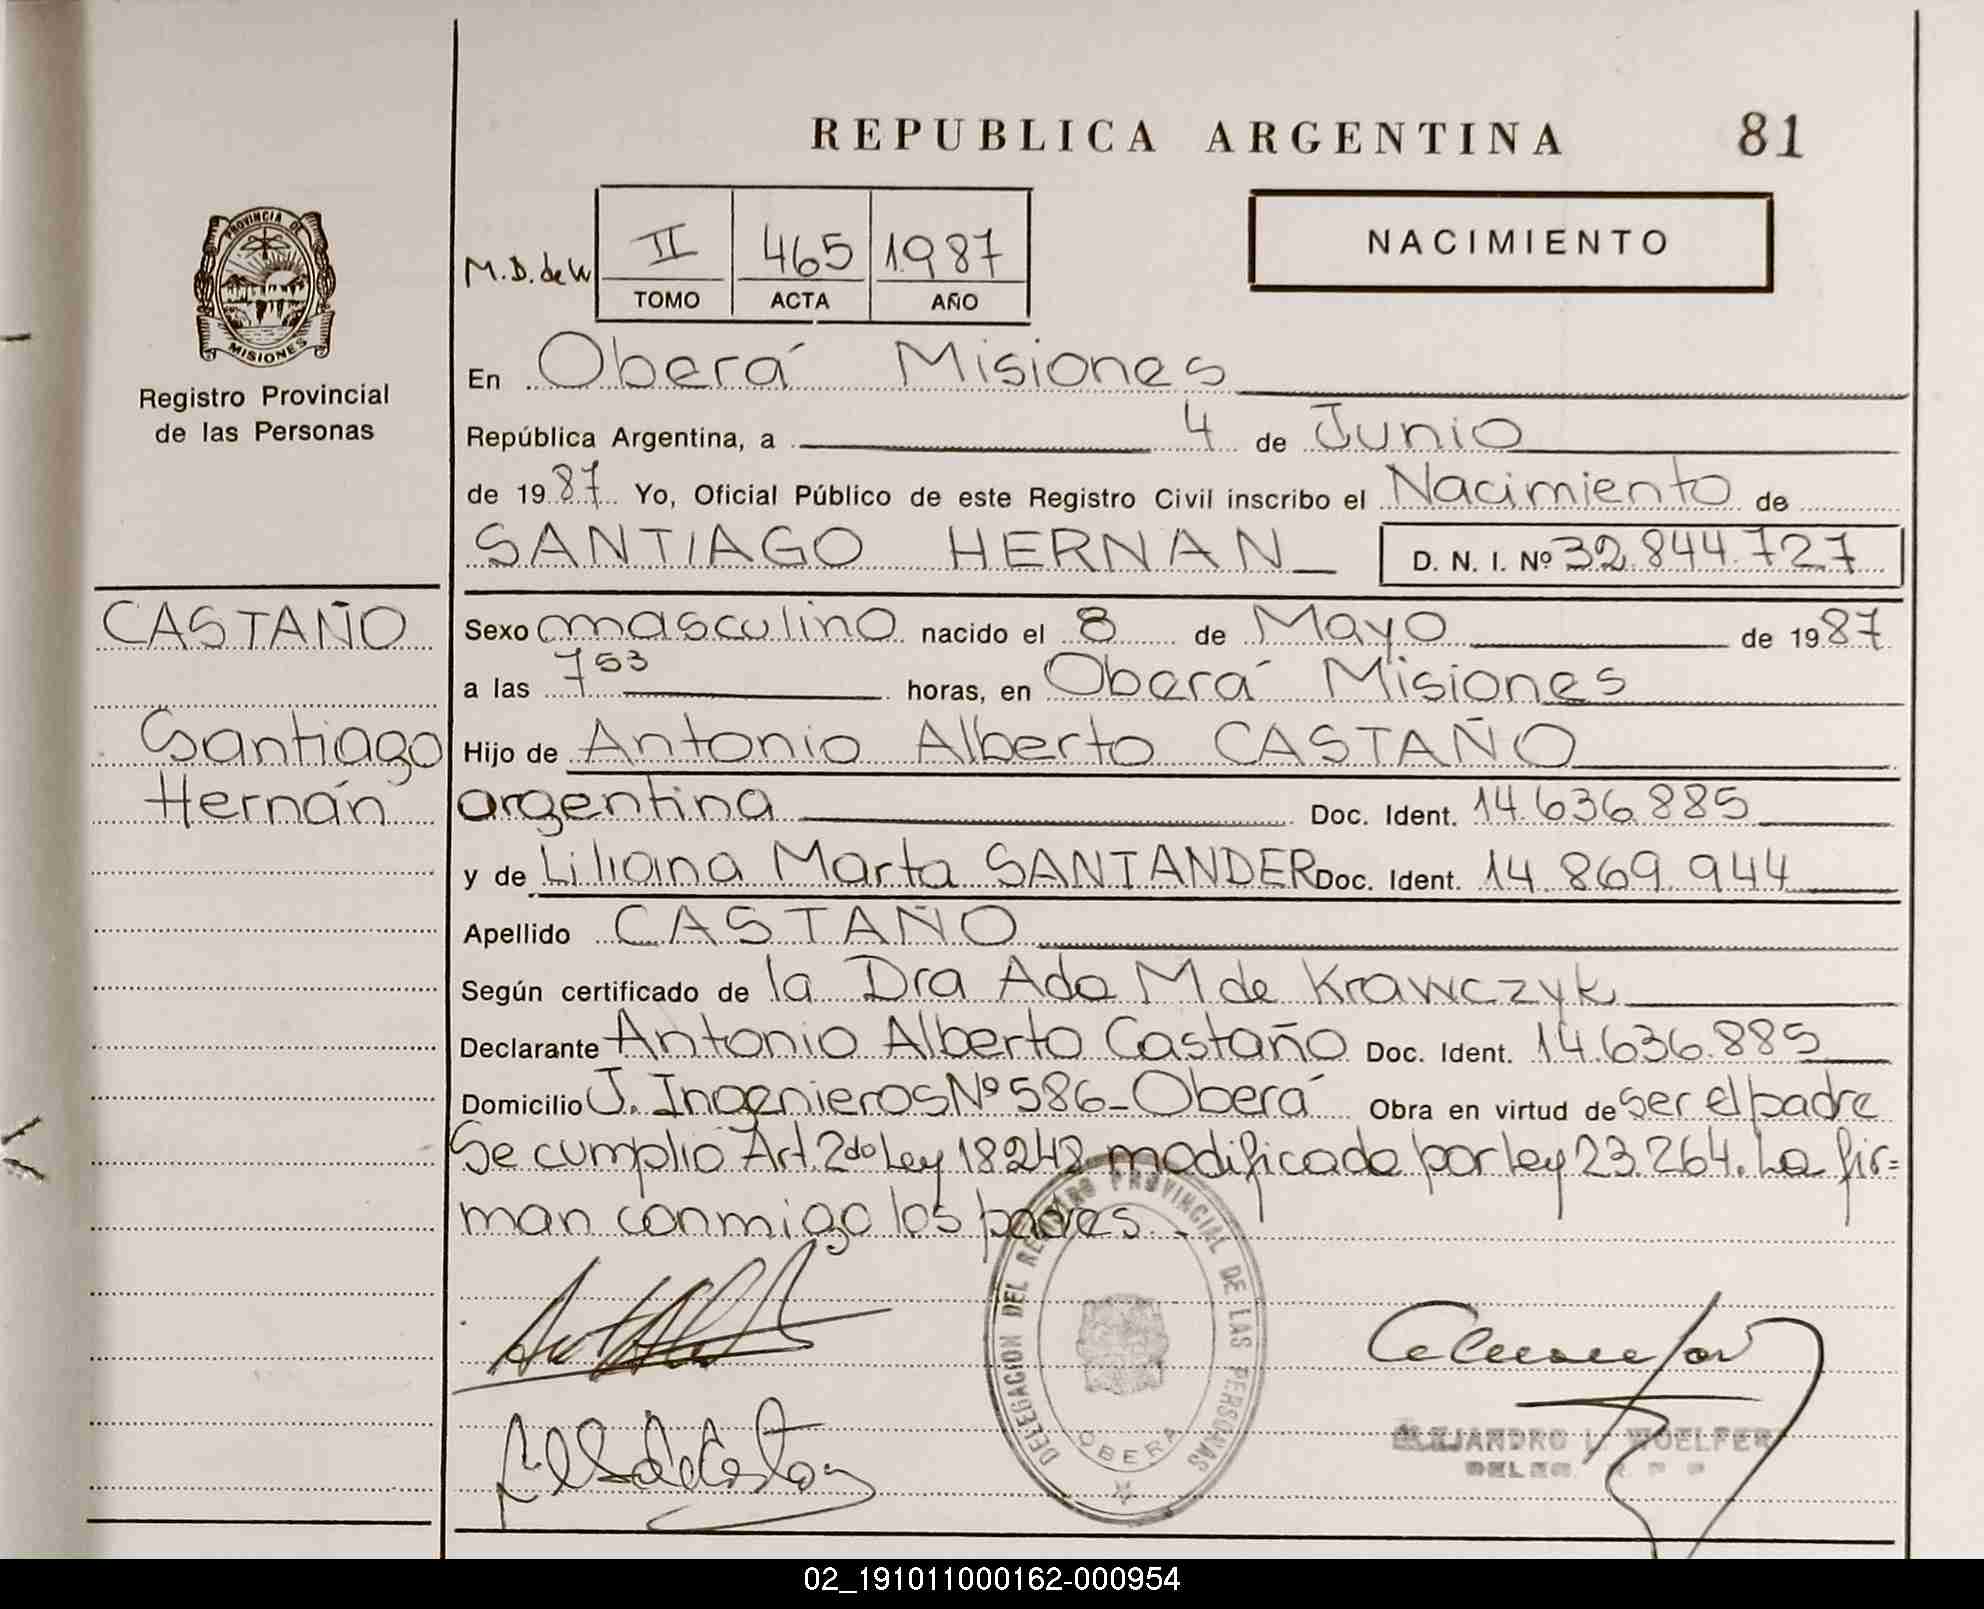 REPUBLICA ARGENTINA 81
PROVINCIA DE
MISIONES
Registro Provincial
de las Personas
M.D. de W
II 465 1987
TOMO ACTA AÑO
NACIMIENTO
En Oberá Misiones
República Argentina, a 4 de Junio
de 1987 Yo, Oficial Público de este Registro Civil inscribo el Nacimiento de
SANTIAGO HERNAN D. N. I. Nº 32.844.727
CASTAÑO
Santiago
Hernán
Sexo masculino nacido el 8 de Mayo de 1987
a las 7 53 horas, en Oberá Misiones
Hijo de Antonio Alberto CASTAÑO
argentina Doc. Ident. 14.636.885
y de Liliana Marta SANTANDER Doc. Ident. 14.869.944
Apellido CASTAÑO
Según certificado de la Dra Ada M de Krawczyk
Declarante Antonio Alberto Castaño Doc. Ident. 14.636.885
Domicilio J. Ingenieros Nº 586_Oberá Obra en virtud de ser el padre
Se cumplio Art. 2do Ley 18248 modificada por ley 23.264. La fir=
man conmigo los padres._
DELEGACION DEL REGISTRO PROVINCIAL DE LAS PERSONAS
OBERA
ALEJANDRO L. WOELFER
02_191011000162-000954